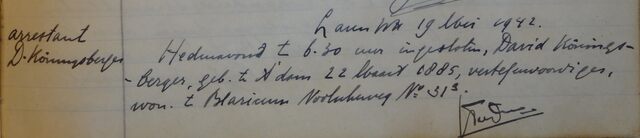 19 Mei 1942.
arrestant
D. Königsberger
Hedenavond t 6.30 uur ingesloten, David Königs-
-berger, geb. t A'dam 22 Maart 1885, vertegenwoordiger,
won. t Blaricum No 31